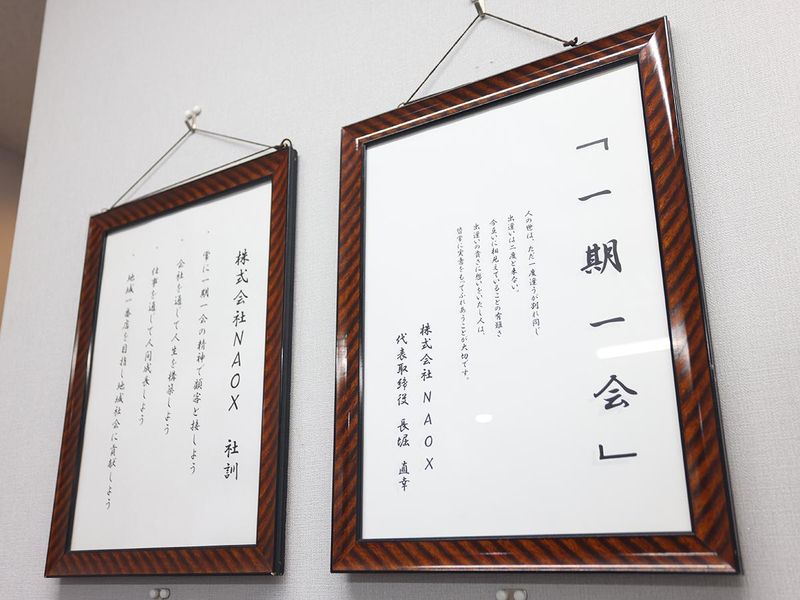 「一期一会」
人の世は、ただ一度逢うが別れ同じ
出逢いは二度と来ない。
今互いに相見えていることの有難さ
出逢いの貴さに想いをいたし人は、
皆常に実意をもってふれあうことが大切です。
株式会社 NAOX
代表取締役 長堀 直幸
株式会社NAOX 社訓
・常に一期一会の精神で顧客と接しよう
・会社を通して人生を構築しよう
・仕事を通して人間成長しよう
・地域一番店を目指し地域社会に貢献しよう